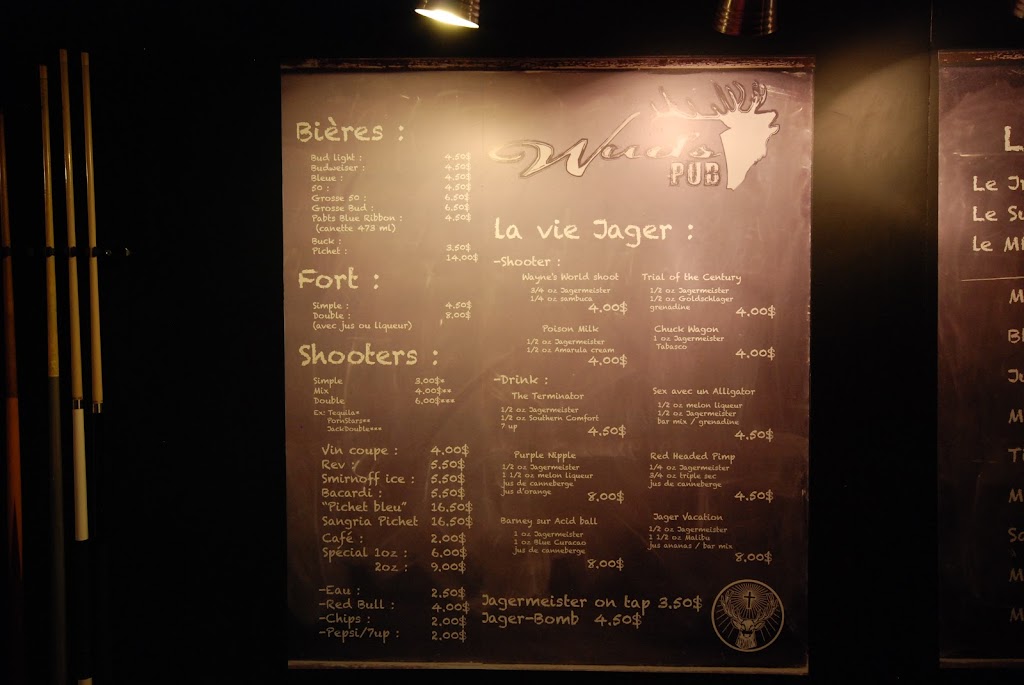 Wuds
PUB
Bières :
Bud light : 4.50$
Budweiser : 4.50$
Bleue : 4.50$
50 : 4.50$
Grosse 50 : 6.50$
Grosse Bud : 6.50$
Pabts Blue Ribbon : 4.50$
(canette 473 ml)
Buck : 3.50$
Pichet : 14.00$
Fort :
Simple : 4.50$
Double : 8.00$
(avec jus ou liqueur)
Shooters :
Simple 3.00$*
Mix 4.00$**
Double 6.00$***
Ex: Tequila*
PornStars**
JackDouble***
Vin coupe : 4.00$
Rev : 5.50$
Smirnoff ice : 5.50$
Bacardi : 5.50$
"Pichet bleu" 16.50$
Sangria Pichet 16.50$
Café : 2.00$
Spécial 1oz : 6.00$
2oz : 9.00$
-Eau : 2.50$
-Red Bull : 4.00$
-Chips : 2.00$
-Pepsi/7up : 2.00$
La vie Jager :
-Shooter :
Wayne's World shoot
3/4 oz Jagermeister
1/4 oz sambuca
4.00$
Trial of the Century
1/2 oz Jagermeister
1/2 oz Goldschlager
grenadine
4.00$
Poison Milk
1/2 oz Jagermeister
1/2 oz Amarula cream
4.00$
Chuck Wagon
1 oz Jagermeister
Tabasco
4.00$
-Drink :
The Terminator
1/2 oz Jagermeister
1/2 oz Southern Comfort
7 up
4.50$
Sex avec un Alligator
1/2 oz melon liqueur
1/2 oz Jagermeister
bar mix / grenadine
4.50$
Purple Nipple
1/2 oz Jagermeister
1 1/2 oz melon liqueur
jus de canneberge
jus d'orange
8.00$
Red Headed Pimp
1/4 oz Jagermeister
3/4 oz triple sec
jus de canneberge
4.50$
Barney sur Acid ball
1 oz Jagermeister
1 oz Blue Curacao
jus de canneberge
8.00$
Jager Vacation
1/2 oz Jagermeister
1 1/2 oz Malibu
jus ananas / bar mix
8.00$
Jagermeister on tap 3.50$
Jager-Bomb 4.50$
Le
Le
le